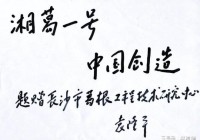 湘葛一号
中国创造
题赠长沙市葛根工程技术研究中心
袁隆平